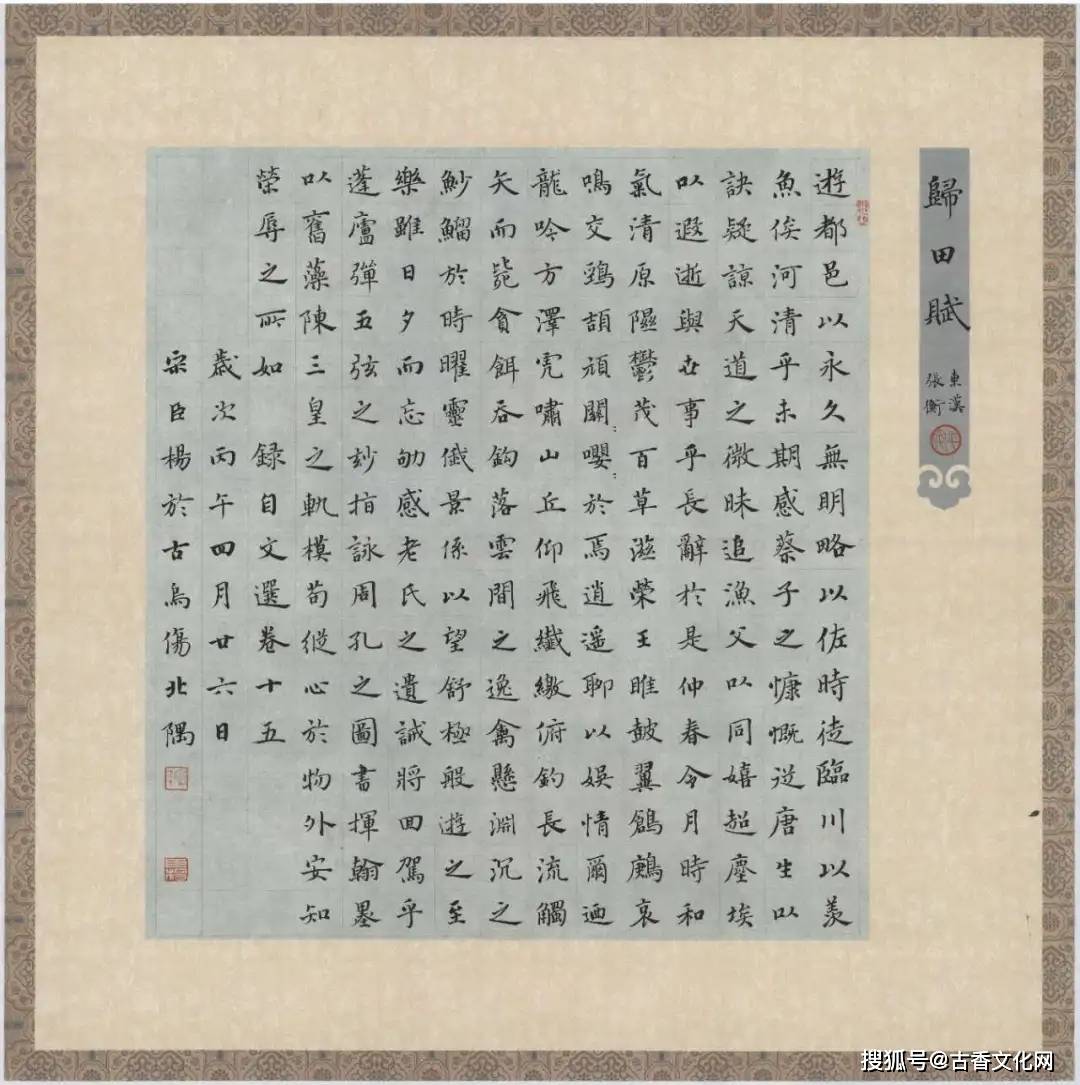 歸田賦
東漢
張衡
遊都邑以永久無明略以佐時徒臨川以羨
魚俟河清乎未期感蔡子之慷慨從唐生以
訣疑諒天道之微昧追漁父以同嬉超塵埃
以遐逝與世事乎長辭於是仲春令月時和
氣清原隰鬱茂百草滋榮王雎鼓翼鶬鶊哀
鳴交頸頡頏關〻嚶〻於焉逍遥聊以娱情爾迺
龍吟方澤虎嘯山丘仰飛纖繳俯釣長流觸
矢而斃貪餌吞鈎落雲間之逸禽懸淵沉之
魦鰡於時曜靈俄景係以望舒極般遊之至
樂雖日夕而忘劬感老氏之遺誡將回駕乎
蓬廬彈五弦之妙指詠周孔之圖書揮翰墨
以奮藻陳三皇之軌模苟縱心於物外安知
榮辱之所如 録自文選卷十五
歲次丙午四月廿六日
宋臣楊於古烏傷北隅
搜狐号@古香文化网